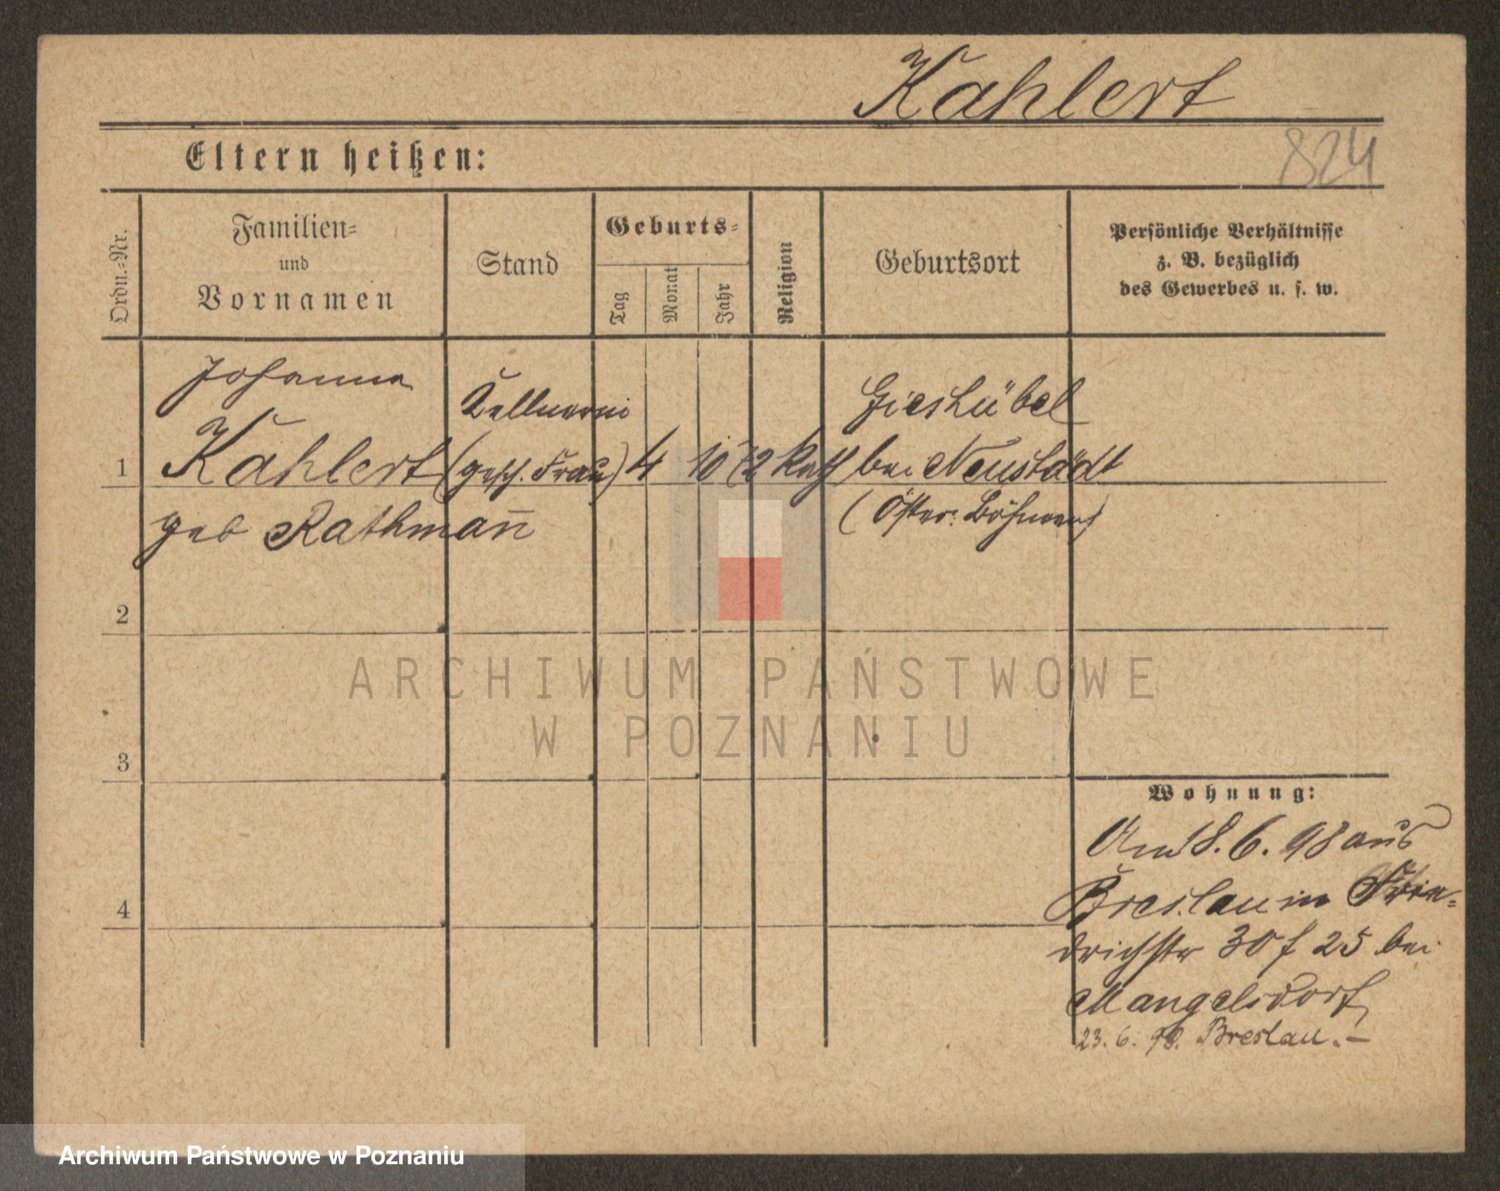 Kahlert
824
Eltern heißen:
Ordn.=Nr.
Familien=
und
Vornamen
Stand
Geburts=
Tag
Monat
Jahr
Religion
Geburtsort
Persönliche Verhältnisse
z. B. bezüglich
des Gewerbes u. s. w.
1
Johanna
Kahlert
geb Rathman̄
Kellnerin
(gesch. Frau)
4
10
72
kath
Gieshübel
bei Neustadt
(Öster: Böhmen)
2
3
4
Wohnung:
Am 18. 6. 98 aus
Breslau in Frie=
drichstr 30 f 25 bei
Mangelsdorf
23. 6. 98. Breslau. –
ARCHIWUM PAŃSTWOWE
W POZNANIU
Archiwum Państwowe w Poznaniu